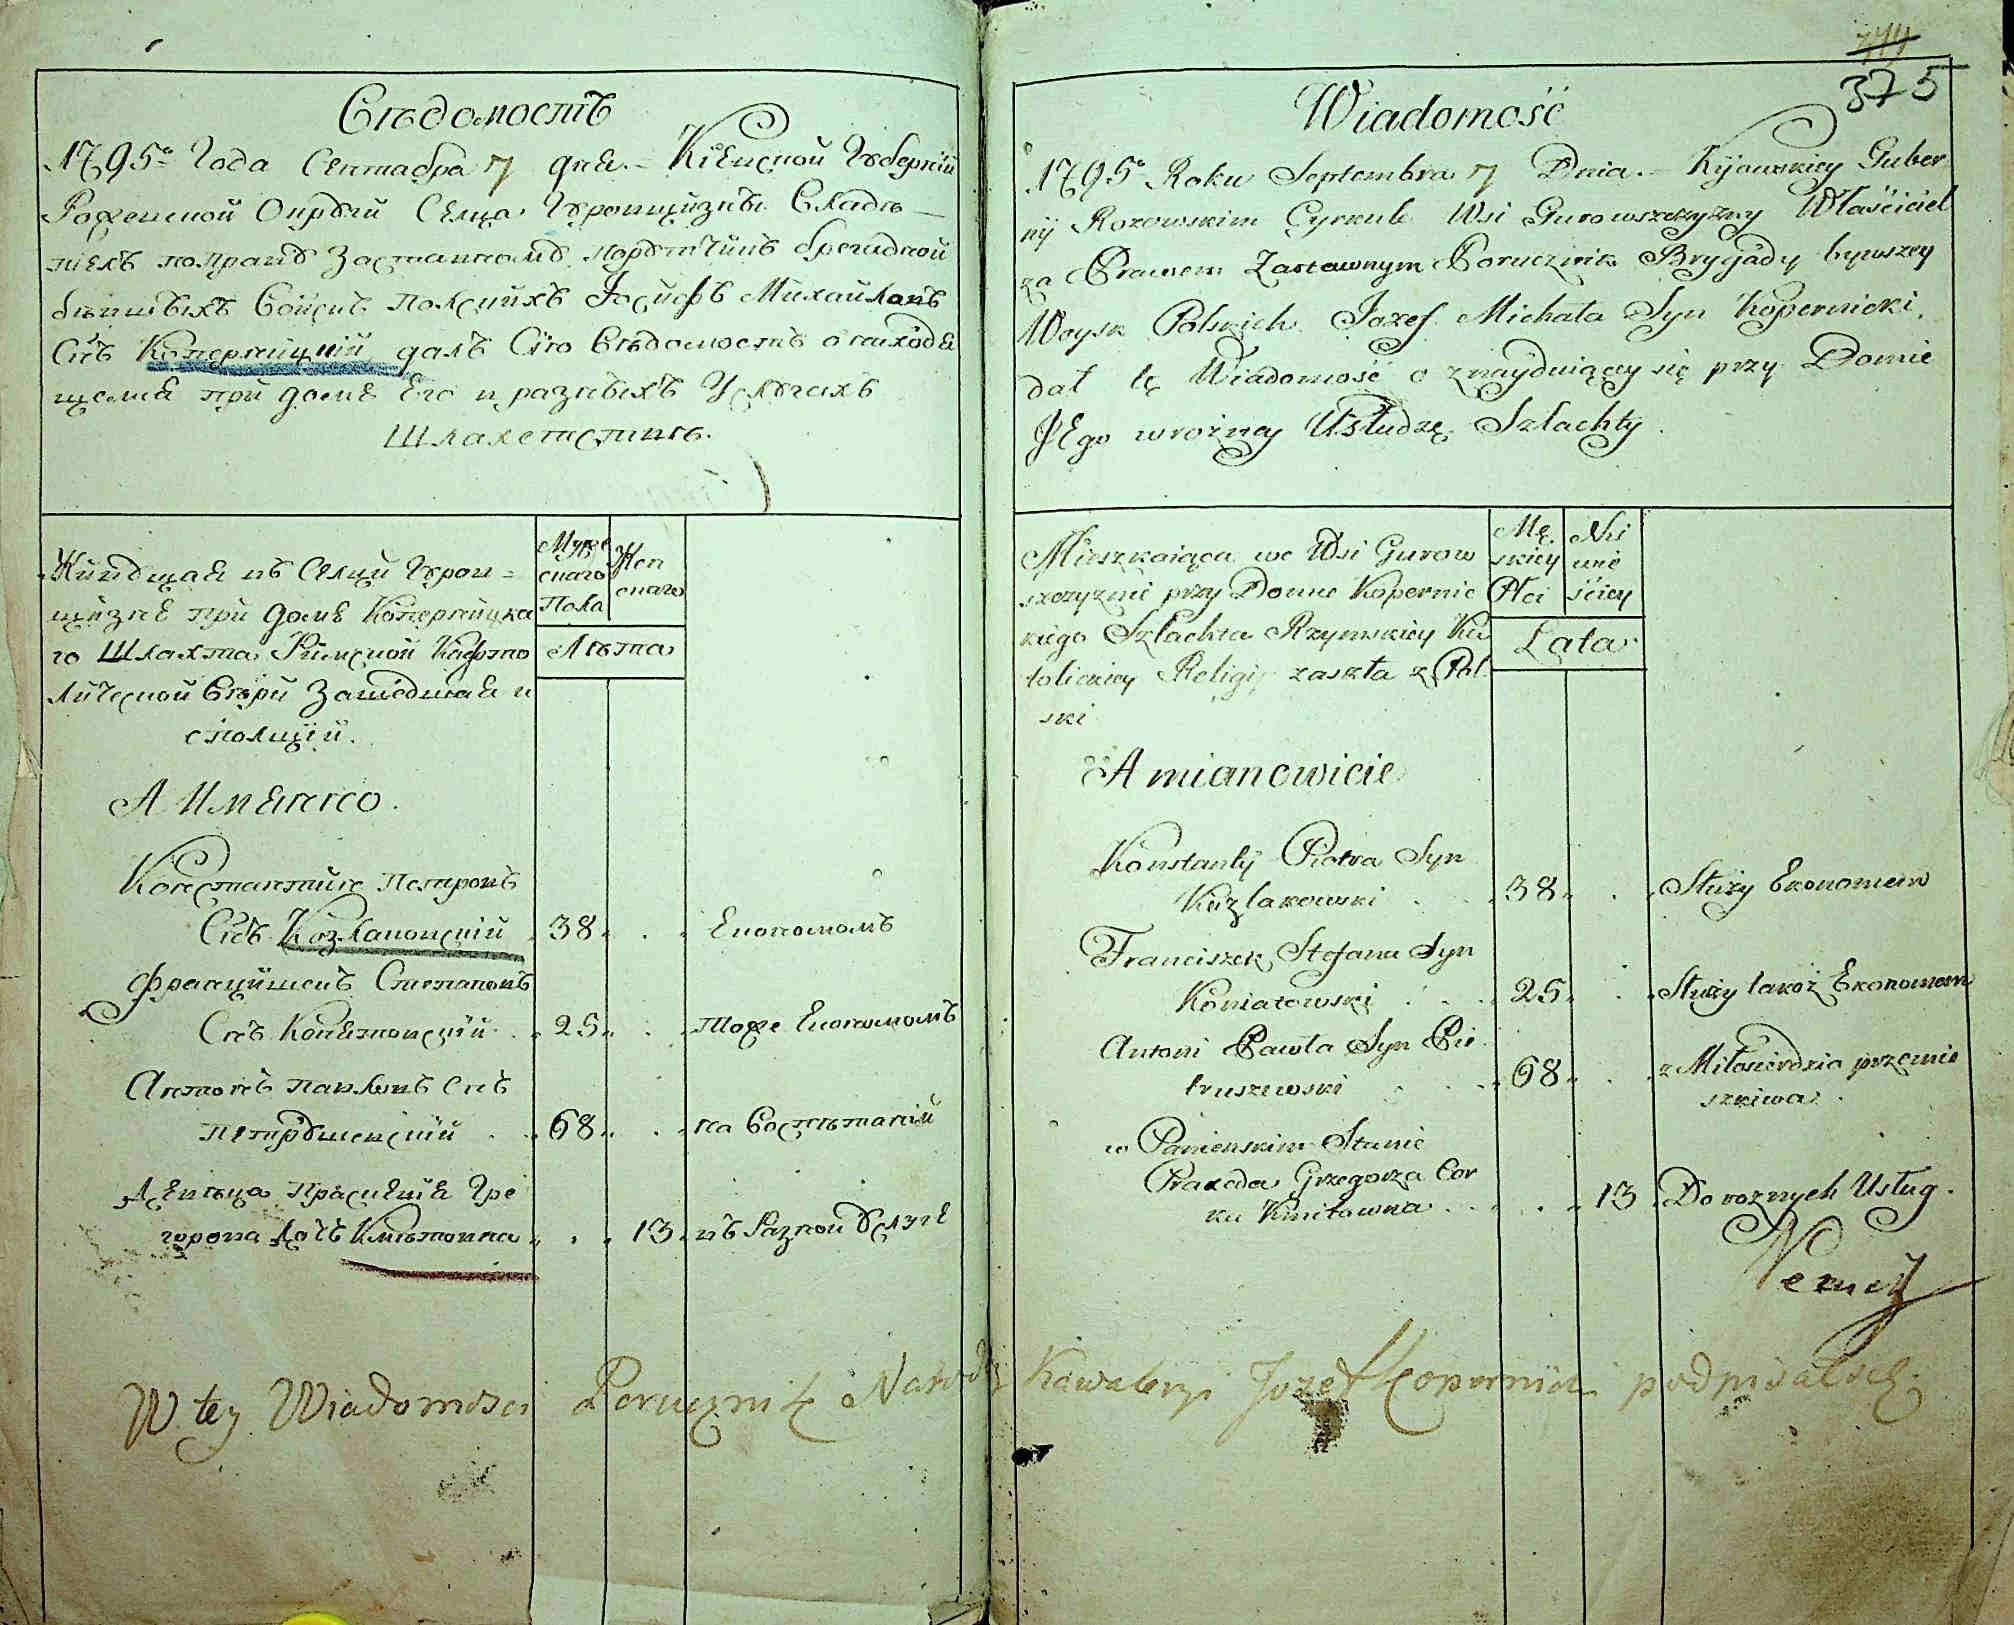 Вѣдомость
1795го Года Сентабра 7 дня. – Кіевской Губерніи
Рожевской Округи Селца Гуровщизны Владѣ–
тель поправу Заставному порутчикъ бригадной
бывшыхъ Войскъ Полскихъ Іосифъ Михайловъ
Снъ Коперницкій далъ Сію Вѣдомость о находя
щемся при доме Его в разныхъ Услугахъ
Шляхетствѣ.
Живущая въ Селци Гуров=
щизне при доме Коперницка
го Шляхта Римской Кафто
лической Вѣри Зашедшая и
споліции.
А Имянно.
Мужс
скаго
Пола
Жен
скаго
Лѣта
Констянтинъ Петровъ
Снъ Козлаковскій 38 Економомъ
Францишекъ Степановъ
Снъ Конятовскій 25 тоже Економомъ
Антонъ павловъ снъ
петрушевскій 68 на Воспытаніи
Дѣвица Праскевія Гре
горова Дочь Кмѣтовна 13 въ Разной Услуге
774
375
Wiadomość
1795o Roku Septembra 7 Dnia. – Kijowskiey Guber
nij Rozowskim Cyrkule Wsi Gurowszczyzny Właściciel
za Prawem Zastawnym Porucznik Brygady bywszey
Woysk Polskich Jozef Michała Syn Kopernicki.
dał tę Wiadomość o znayduiącey się przy Domie
JEgo w rożney Usłudze Szlachty.
Mieszkaiąca we Wsi Gurow
szczyznie przy Domie Kopernic
kiego Szlachta Rzymskiey Ka
tolickiey Religij zaszła z Pol
ski
Mę
skiey
Płci
Nie
wie
ściey
Lata
A mianowicie
Konstanty Piotra Syn
Kozlakowski 38 Służy Ekonomem
Franciszek Stefana Syn
Koniatowski 25 Służy takoż Ekonomem
Antoni Pawła Syn Pie
truszewski 68 z Miłosierdzia przemie
szkiwa
w Panienskim Stanie
Praxeda Grzegorza Cor
ka Kmitowna 13 Do roznych Usług.
W tey Wiadomosci Porucznik Narodo Kawaleryi Jozef Kopernicki podpisał się